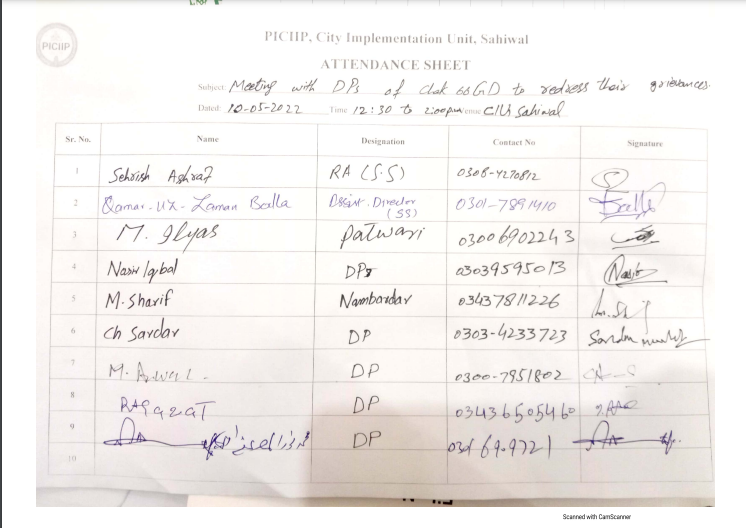 PICIIP
PICIIP, City Implementation Unit, Sahiwal
ATTENDANCE SHEET
Subject: Meeting with DPs of chak 66GD to redress their grievances.
Dated: 10-05-2022 Time 12:30 to 2:00pm Venue CIU Sahiwal
Sr. No. Name Designation Contact No Signature
1 Sehrish Ashraf RA (S.S) 0308-4270812
2 Qamar-uz-Zaman Balla Assist. Director (SS) 0301-7891410
3 M. Ilyas Patwari 03006902243
4 Nasir Iqbal DP 03039595013 Nasir
5 M. Sharif Nambardar 03437811226
6 Ch Sardar DP 0303-4233723
7 M. DP 0300-7951802
8 DP 03436505460
9 DP
10
Scanned with CamScanner